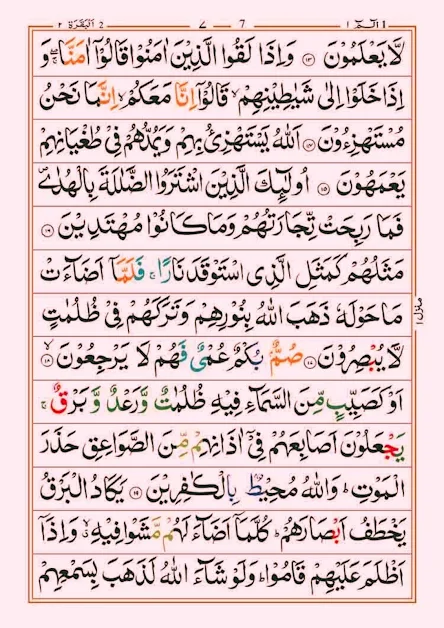 الٓمّٓ ١ ٧ 7 2 اَلْبَقَرَة ٢
لَّا يَعْلَمُوْنَ ۝١٣ وَاِذَا لَقُوا الَّذِيْنَ اٰمَنُوْا قَالُوْٓا اٰمَنَّا ۖۚ وَ
اِذَا خَلَوْا اِلٰى شَيٰطِيْنِهِمْ ۙ قَالُوْٓا اِنَّا مَعَكُمْ ۙ اِنَّمَا نَحْنُ
مُسْتَهْزِءُوْنَ ۝١٤ اَللّٰهُ يَسْتَهْزِئُ بِهِمْ وَيَمُدُّهُمْ فِيْ طُغْيَانِهِمْ
يَعْمَهُوْنَ ۝١٥ اُولٰٓئِكَ الَّذِيْنَ اشْتَرَوُا الضَّلٰلَةَ بِالْهُدٰى ۠
فَمَا رَبِحَتْ تِّجَارَتُهُمْ وَمَا كَانُوْا مُهْتَدِيْنَ ۝١٦
مَثَلُهُمْ كَمَثَلِ الَّذِى اسْتَوْقَدَ نَارًا ۚ فَلَمَّآ اَضَآءَتْ
مَا حَوْلَهٗ ذَهَبَ اللّٰهُ بِنُوْرِهِمْ وَتَرَكَهُمْ فِيْ ظُلُمٰتٍ
لَّا يُبْصِرُوْنَ ۝١٧ صُمٌّۢ بُكْمٌ عُمْيٌ فَهُمْ لَا يَرْجِعُوْنَ ۝١٨ ۙ
اَوْ كَصَيِّبٍ مِّنَ السَّمَآءِ فِيْهِ ظُلُمٰتٌ وَّرَعْدٌ وَّبَرْقٌ ۚ
يَجْعَلُوْنَ اَصَابِعَهُمْ فِيْٓ اٰذَانِهِمْ مِّنَ الصَّوَاعِقِ حَذَرَ
الْمَوْتِ ۭ وَاللّٰهُ مُحِيْطٌۢ بِالْكٰفِرِيْنَ ۝١٩ يَكَادُ الْبَرْقُ
يَخْطَفُ اَبْصَارَهُمْ ۭ كُلَّمَآ اَضَآءَ لَهُمْ مَّشَوْا فِيْهِ ۙ وَاِذَآ
اَظْلَمَ عَلَيْهِمْ قَامُوْا ۭ وَلَوْ شَآءَ اللّٰهُ لَذَهَبَ بِسَمْعِهِمْ
منزل ١